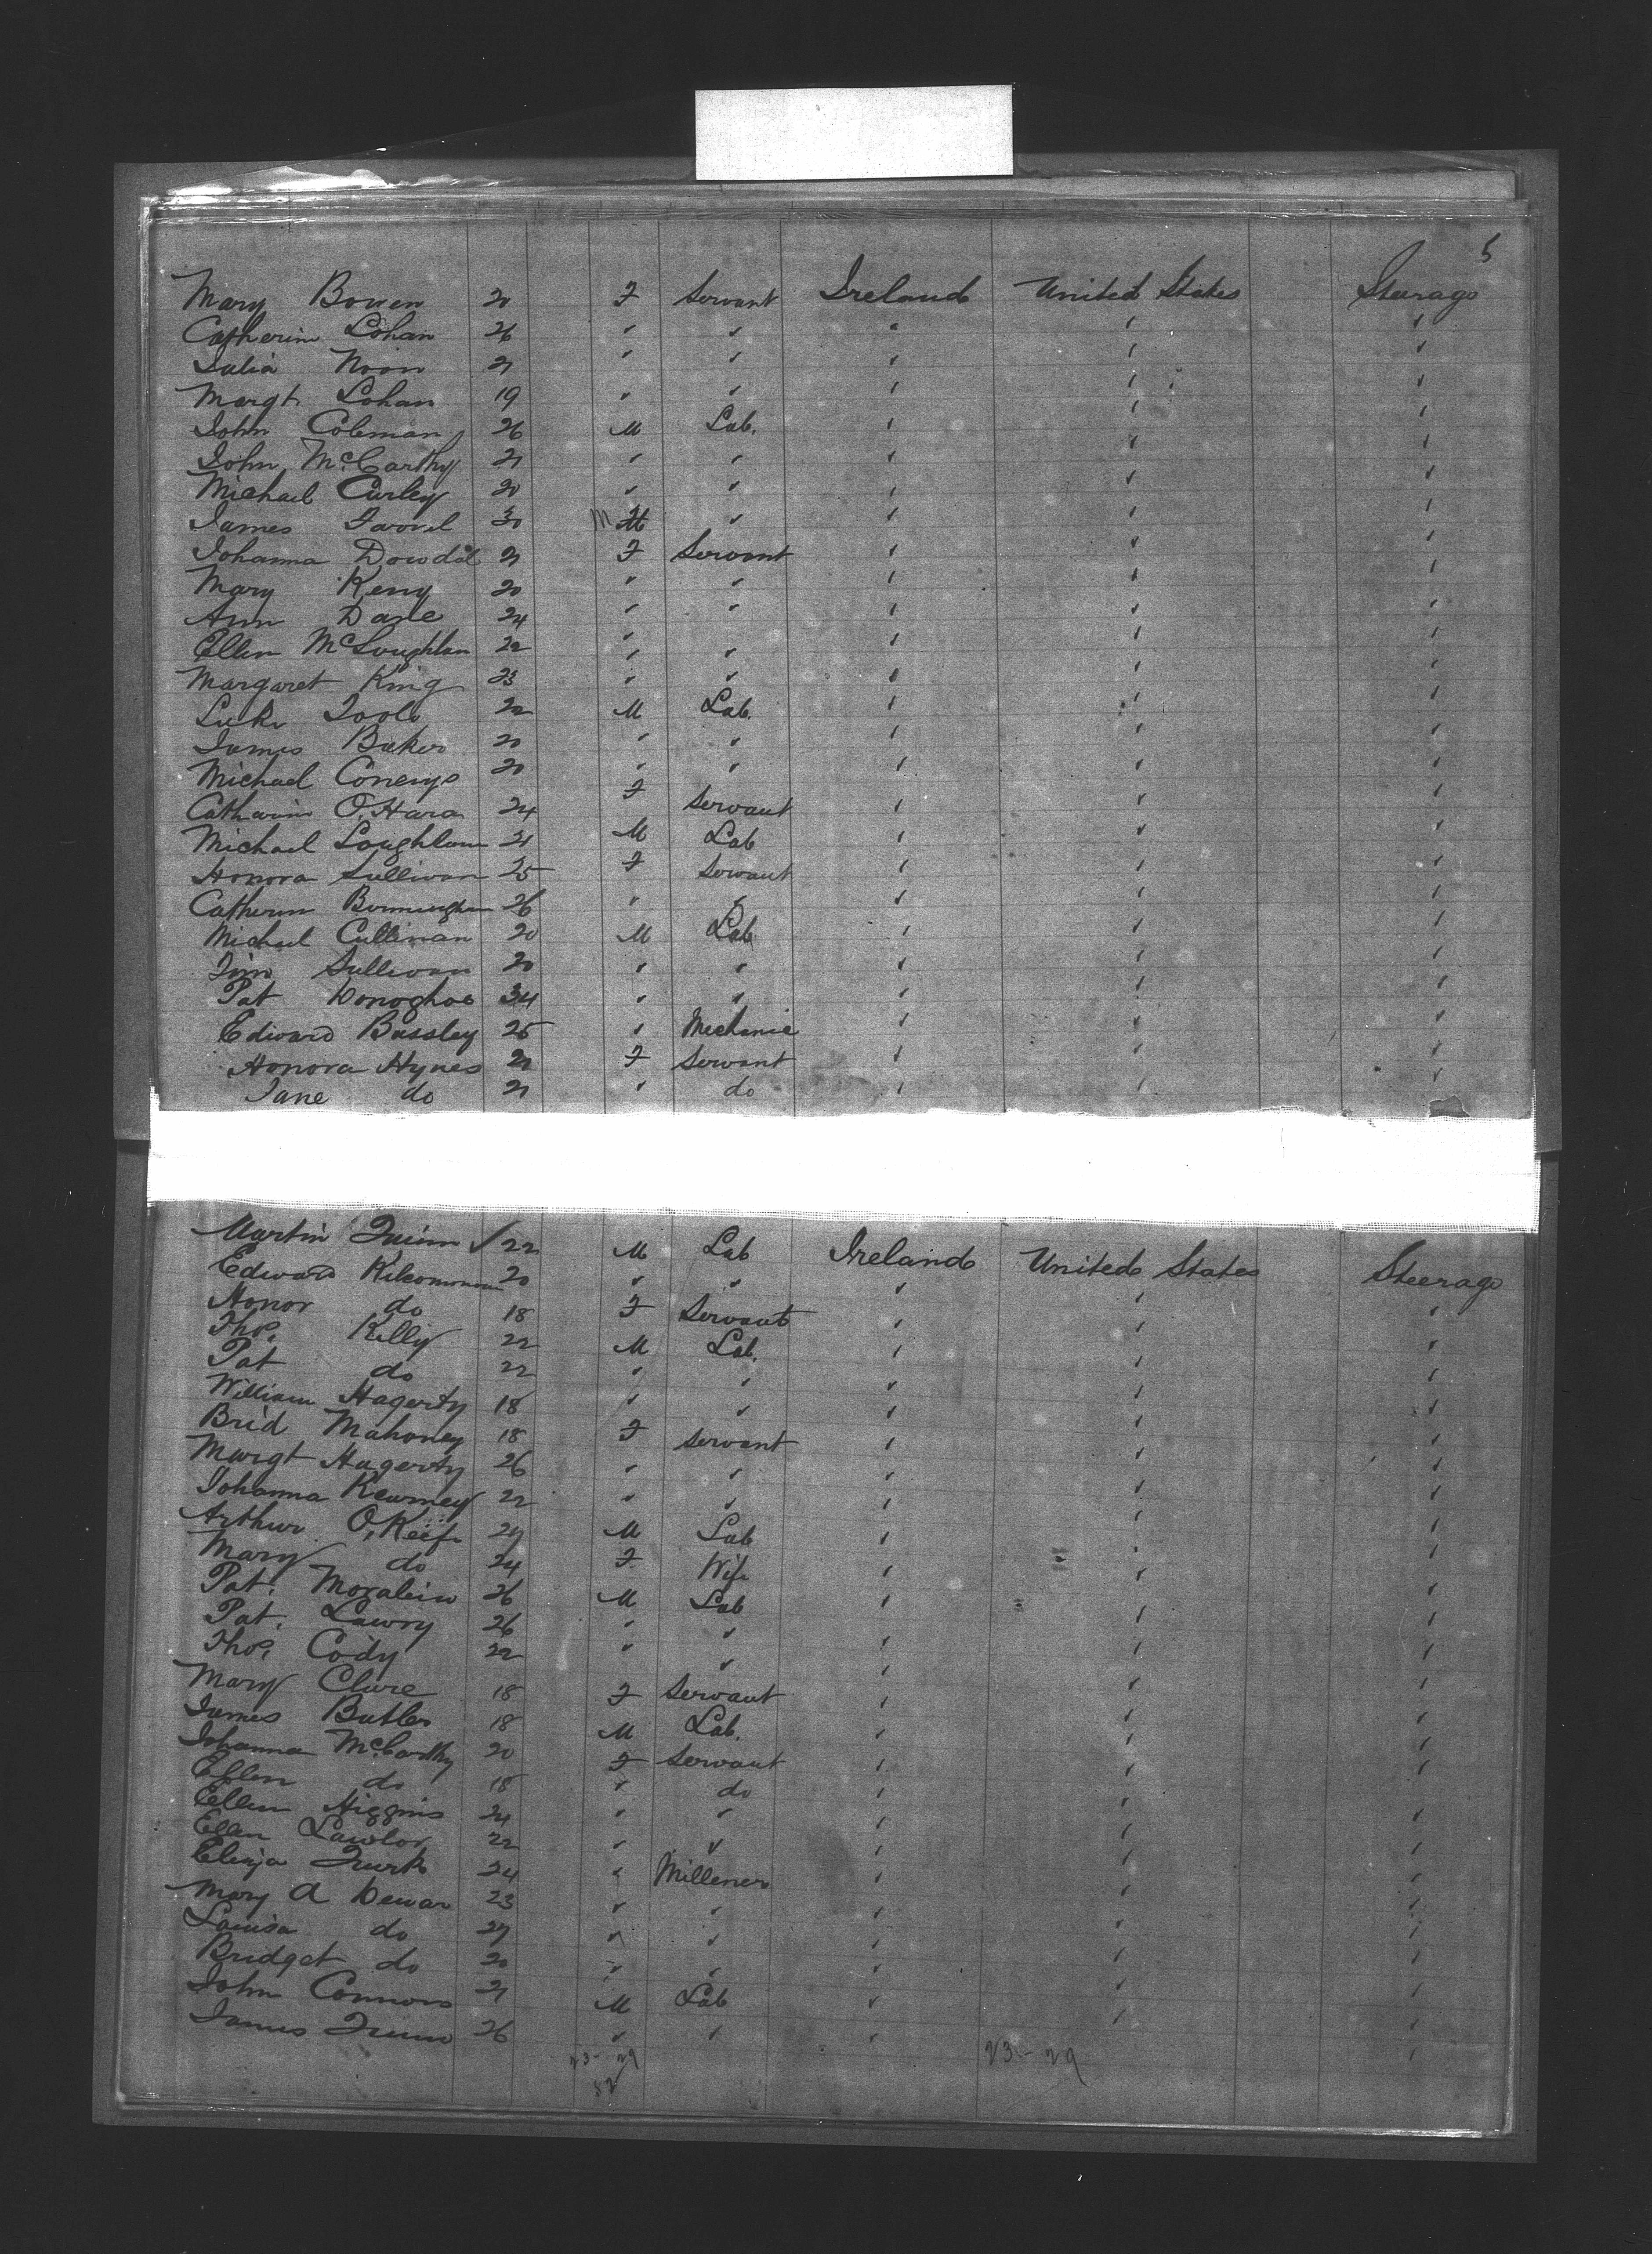 5
Mary Bowen 20 F Servant Ireland United States Steerage
Catherine Lohan 26 " " " " "
Julia Noon 21 " " " " "
Margt. Lohan 19 " " " " "
John Coleman 26 M Lab. " " "
John McCarthy 21 " " " " "
Michael Curley 20 " " " " "
James 30 M " " " "
Johanna Dowd 21 F Servant " " "
Mary Keny 20 " " " " "
Ann Dane 24 " " " " "
Ellen McLoughlan 22 " " " " "
Margaret King 23 " " " " "
Luke Toole 22 M Lab. " " "
James Baker 20 " " " " "
Michael Conerys 20 " " " " "
Catharine O'Hara 24 F Servant " " "
Michael Loughlan 21 M Lab " " "
Honora Sullivan 25 F Servant " " "
Catherin Birmingham 26 " " " " "
Michael Cullinan 20 M Lab " " "
Tim Sullivan 20 " " " " "
Pat Donoghoe 34 " " " " "
Edward Bassley 25 " Mechanic " " "
Honora Hynes 22 F Servant " " "
Jane do 21 " do " " "
Martin Quinn 22 M Lab Ireland United States Steerage
Edward Kilcommon 20 " " " " "
Honor do 18 F Servant " " "
Thos. Killy 22 M Lab. " " "
Pat do 22 " " " " "
William Hagerty 18 " " " " "
Brid Mahoney 18 F Servant " " "
Margt Hagerty 26 " " " " "
Johanna Kearney 22 " " " " "
Arthur O'Keefe 27 M Lab " " "
Mary do 24 F Wife " " "
Pat. 26 M Lab " " "
Pat. Lawry 26 " " " " "
Thos. Cody 22 " " " " "
Mary Clure 18 F Servant " " "
James Butler 18 M Lab. " " "
Johanna McCarthy 20 F Servant " " "
Ellen do 18 " do " " "
Ellen Higgins 24 " " " " "
Ellen Lawlor 22 " " " " "
Eliza Quirk 24 " Millener " " "
Mary A Dewar 23 " " " " "
Louisa do 27 " " " " "
Bridget do 20 " " " " "
John Connors 21 M Lab " " "
James Quinn 26 " " " " "
23 - 29 23 - 29
52